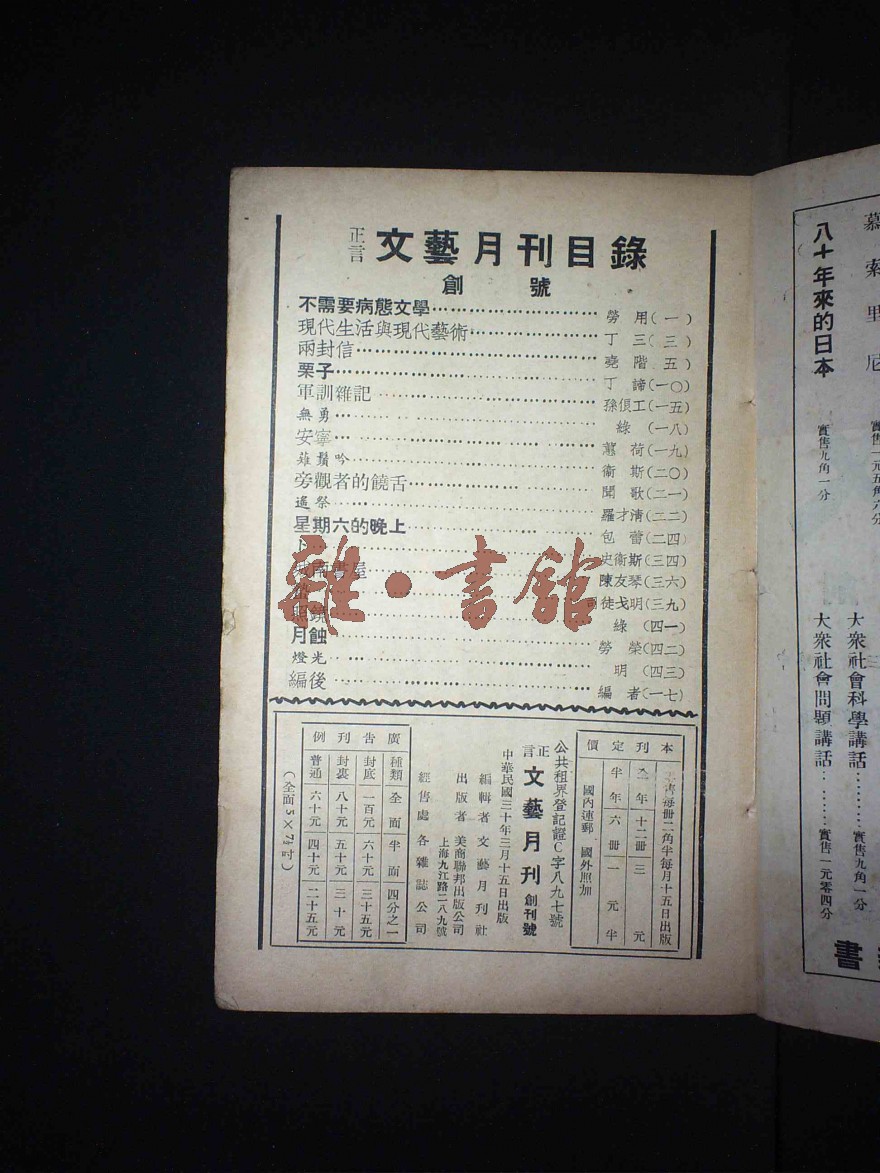 正言 文藝月刊目錄
創 號
不需要病態文學 勞 用(一)
現代生活與現代藝術 丁 三(三)
兩封信 堯 階(五)
栗子 丁 諦(一〇)
軍訓雜記 孫俍工(一五)
無勇 綠 (一八)
安寧 荷(一九)
薙鬚吟 衛 斯(二〇)
旁觀者的饒舌 聞 歌(二一)
遙祭 羅才清(二二)
星期六的晚上 包 蕾(二四)
史衛斯(三四)
書屋 陳友琴(三六)
司徒戈明(三九)
綠 (四一)
月蝕 勞 榮(四二)
燈光 明 (四三)
編後 編 者(一七)
雜·書館
本刊定價
每冊二角半每月十五日出版
全年十二冊三元
半年六冊一元半
國內連郵 國外照加
公共租界登記證C字八九七號
正言 文藝月刊 創刊號
中華民國三十年三月十五日出版
編輯者 文藝月刊社
出版者 美商聯邦出版公司
上海九江路二八九號
經售處 各雜誌公司
廣告刊例
種類 全面 半面 四分之一
封底 一百元 六十元 三十五元
封裏 八十元 五十元 三十元
普通 六十元 四十元 二十五元
(全面5×7½吋)
慕索里尼 實售一元五角六分
八十年來的日本 實售九角一分
大衆社會科學講話 實售九角一分
大衆社會問題講話 實售一元零四分
書